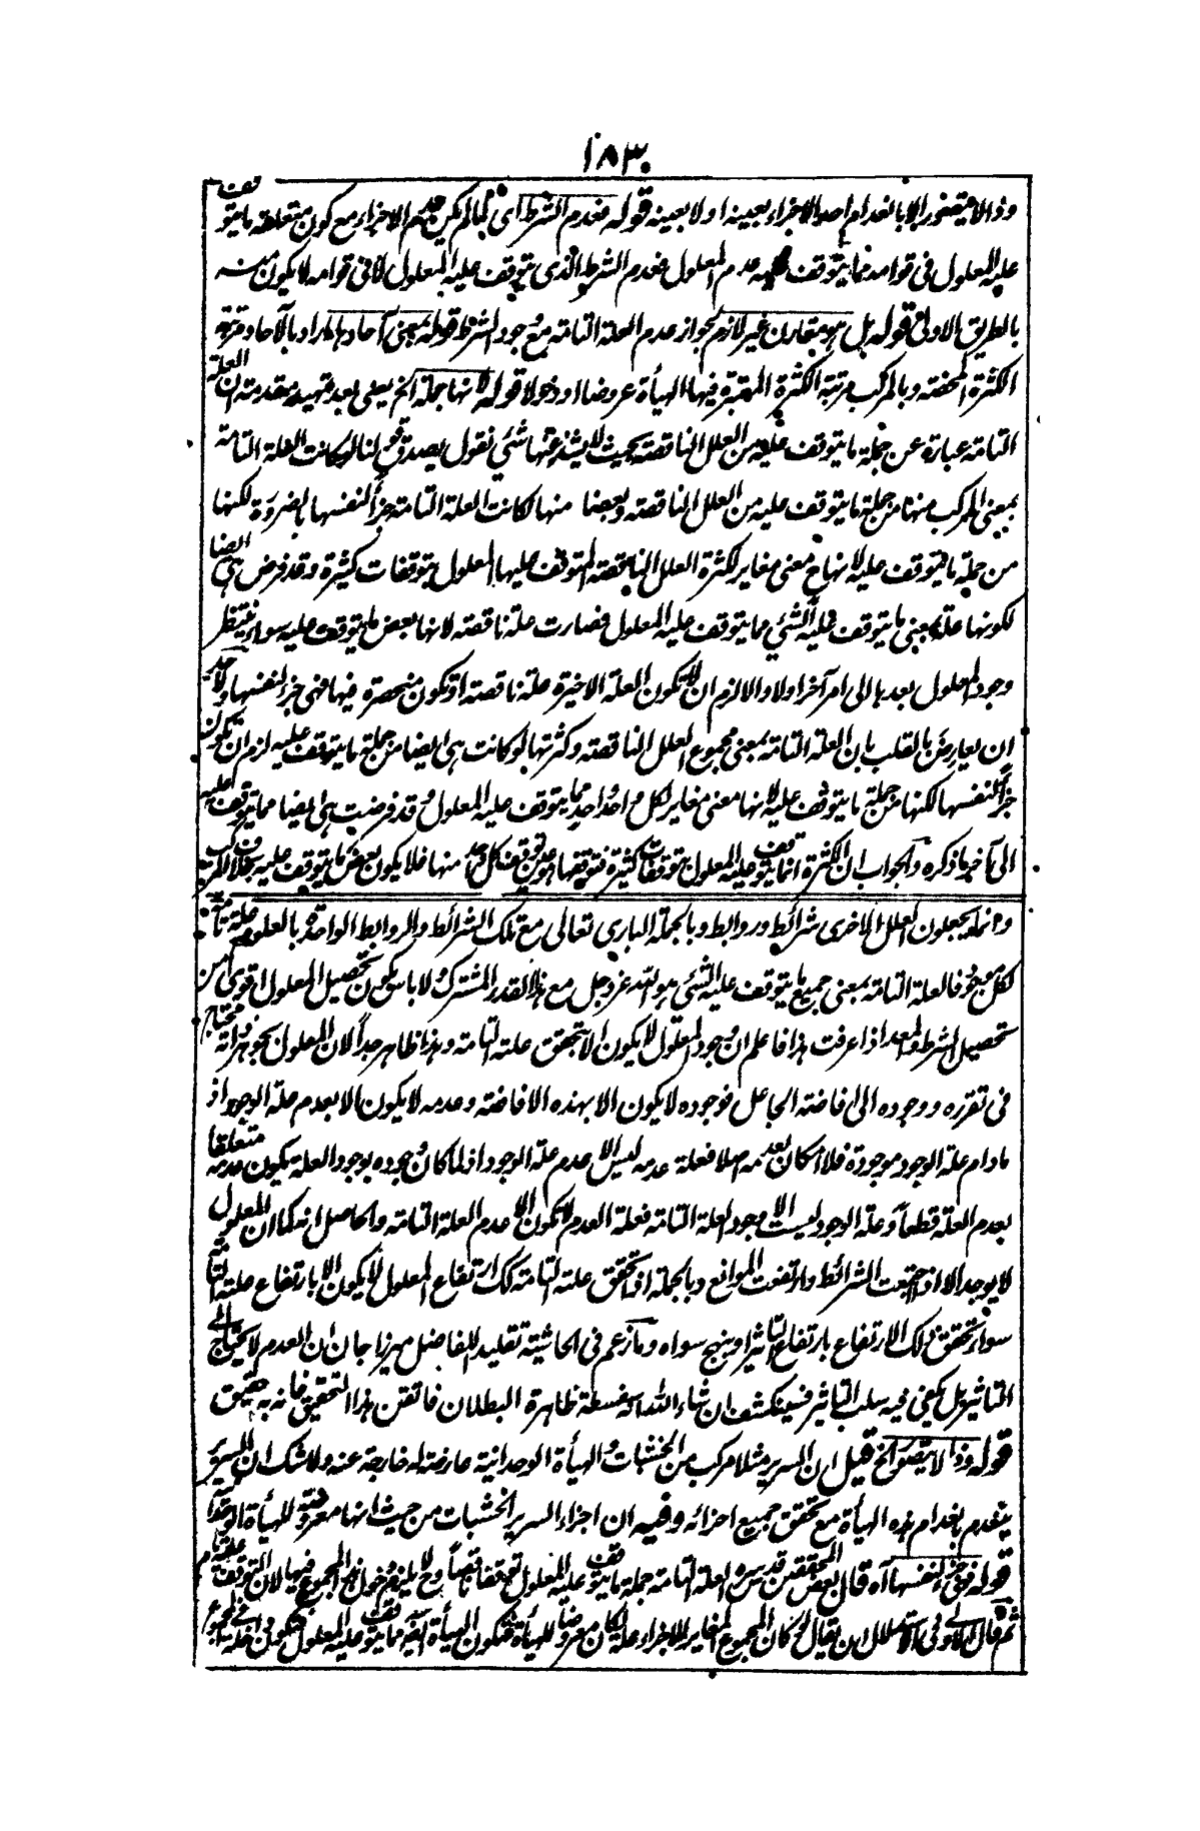 ١٨٣
وذا لا يتصور الا بانعدام احد الاجزاء بعينه او لا بعينه قوله فعدم الشرط اى لما لم يكن عدم الاجزاء مع كون متعلقه ما يتوقف
عليه المعلول فى قوامه مما يتوقف عليه عدم المعلول فعدم الشرط الذى يتوقف عليه المعلول لا فى قوامه لا يكون منه
بالطريق الاولى قوله بل هو مقارن غير لازم لجواز عدم العلة التامة مع وجود الشرط قوله بمعنى آحادها المراد بالآحاد مرتبة
الكثرة المحضة وبالمركب مرتبة الكثرة المعتبرة فيها الهيأة عروضا او دخولا قوله لانها جملة الخ يعنى بعد تمهيد مقدمة ان العلة
التامة عبارة عن جملة ما يتوقف عليه من العلل الناقصة بحيث لا يشذ عنها شئ نقول يصدق قولنا لو كانت العلة التامة
بمعنى المركب منها من جملة ما يتوقف عليه من العلل الناقصة وبعضا منها لكانت العلة التامة جزأ لنفسها بالضرورة لكنها
من جملة ما يتوقف عليه لانها ح معنى مغاير لكثرة العلل الناقصة المتوقف عليها المعلول بتوقفات كثيرة وقد فرض هى ايضا
لكونها علة بمعنى ما يتوقف عليه الشئ مما يتوقف عليه المعلول فصارت علة ناقصة لانها بعض ما يتوقف عليه سواء ينتظر
وجود المعلول بعدها الى امر آخر او لا والا لزم ان لا تكون العلة الاخيرة علة ناقصة او تكون منحصرة فيها فهى جزء لنفسها ولاحد
ان يعارض بالقلب بان العلة التامة بمعنى مجموع العلل الناقصة وكثرتها لو كانت هى ايضا من جملة ما يتوقف عليه لزم ان تكون
جزأ لنفسها لكنها من جملة ما يتوقف عليه لانها معنى مغاير لكل واحد واحد مما يتوقف عليه المعلول وقد فرضت هى ايضا مما يتوقف عليه
الى آخر ما ذكره والجواب ان الكثرة انما يتوقف عليه المعلول بتوقفات كثيرة فتوقفها هو توقف كل منها فلا يكون بعض ما يتوقف عليه بخلاف المركب
وانما يجعلون العلل الاخرى شرائط وروابط وبالجملة البارى تعالى مع تلك الشرائط والروابط الواحدة بالعلوم علة تامة
لكل معلول فالعلة التامة بمعنى جميع ما يتوقف عليه الشئ هو الله عز وجل مع هذا القدر المشترك ولا باس بكون تحصيل المعلول اقوى من
تحصيل الشرط والمعد اذا عرفت هذا فاعلم ان وجود المعلول لا يكون الا بتحقق علته التامة وهذا ظاهر جداً لان المعلول بجوهر ذاته محتاج
فى تقرره ووجوده الى افاضة الجاعل فوجوده لا يكون الا بهذه الافاضة وعدمه لا يكون الا بعدم علة الوجود اذ
مادام علة الوجود موجودة فلا امكان لعدمه اصلا فعلة عدمه ليس الا عدم علة الوجود اذ لما كان وجوده بوجود العلة يكون عدمه متعلقا
بعدم العلة قطعاً وعلة الوجود ليست الا وجود العلة التامة فعلة العدم لا تكون الا عدم العلة التامة والحاصل انه كما ان المعلول
لا يوجد الا اذا اجتمعت الشرائط وارتفعت الموانع وبالجملة اذا تحقق علته التامة كك ارتفاع المعلول لا يكون الا بارتفاع علته التامة
سواء تحقق ذلك الارتفاع بارتفاع التاثير او بنهج سواه وما زعم فى الحاشية تقليدا للفاضل ميرزا جان ان العدم لا يحتاج الى
التاثير بل يكفى فيه سلب التاثير فسينكشف ان شاء الله انه سفسطة ظاهرة البطلان فاتقن هذا التحقيق فانه به حقيق
قوله وذا لا يتصور الخ قيل ان السرير مثلا مركب من الخشبات والهيأة الوحدانية عارضة له خارجة عنه ولا شك ان السرير
ينعدم بانعدام هذه الهيأة مع تحقق جميع اجزائه وفيه ان اجزاء السرير الخشبات من حيث انها معروضة للهيأة الوحدانية
قوله فهى جزء لنفسها آه قال بعض المحققين قدس سره العلة التامة جملة ما يتوقف عليه المعلول توقفا ناقصا وح لا يلزم دخول المجموع فيها لان التوقف عليه تام
ثم قال الاولى فى الاستدلال ان يقال لو كان المجموع المغاير للاجزاء علة لكان معروضا للهيأة فتكون الهيأة ايضا مما يتوقف عليه المعلول فتكون داخلة فى المجموع